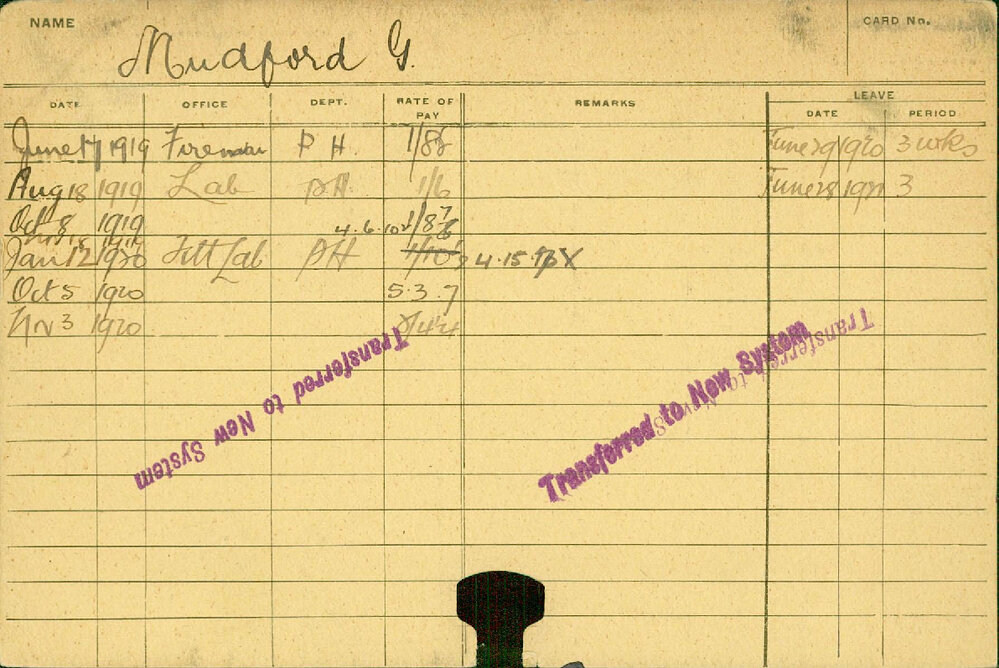 NAME Mudford G. CARD No.
DATE OFFICE DEPT. RATE OF PAY REMARKS LEAVE
DATE PERIOD
June 17 1919 Fireman P H. 1/8 June 29 1920 3 wks
Aug 18 1919 Lab PH. 1/6 June 28 1921 3
Oct 8 1919 4.6.10 1/8
Jan 12 1920 Fitt Lab PH 1/10 4.15.
Oct 5 1920 5.3.7
Nov 3 1920
Transferred to New System
Transferred to New System
Transferred to New System